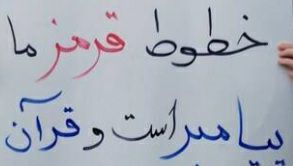 خطوط قرمز ما
پیامبر است و قرآن